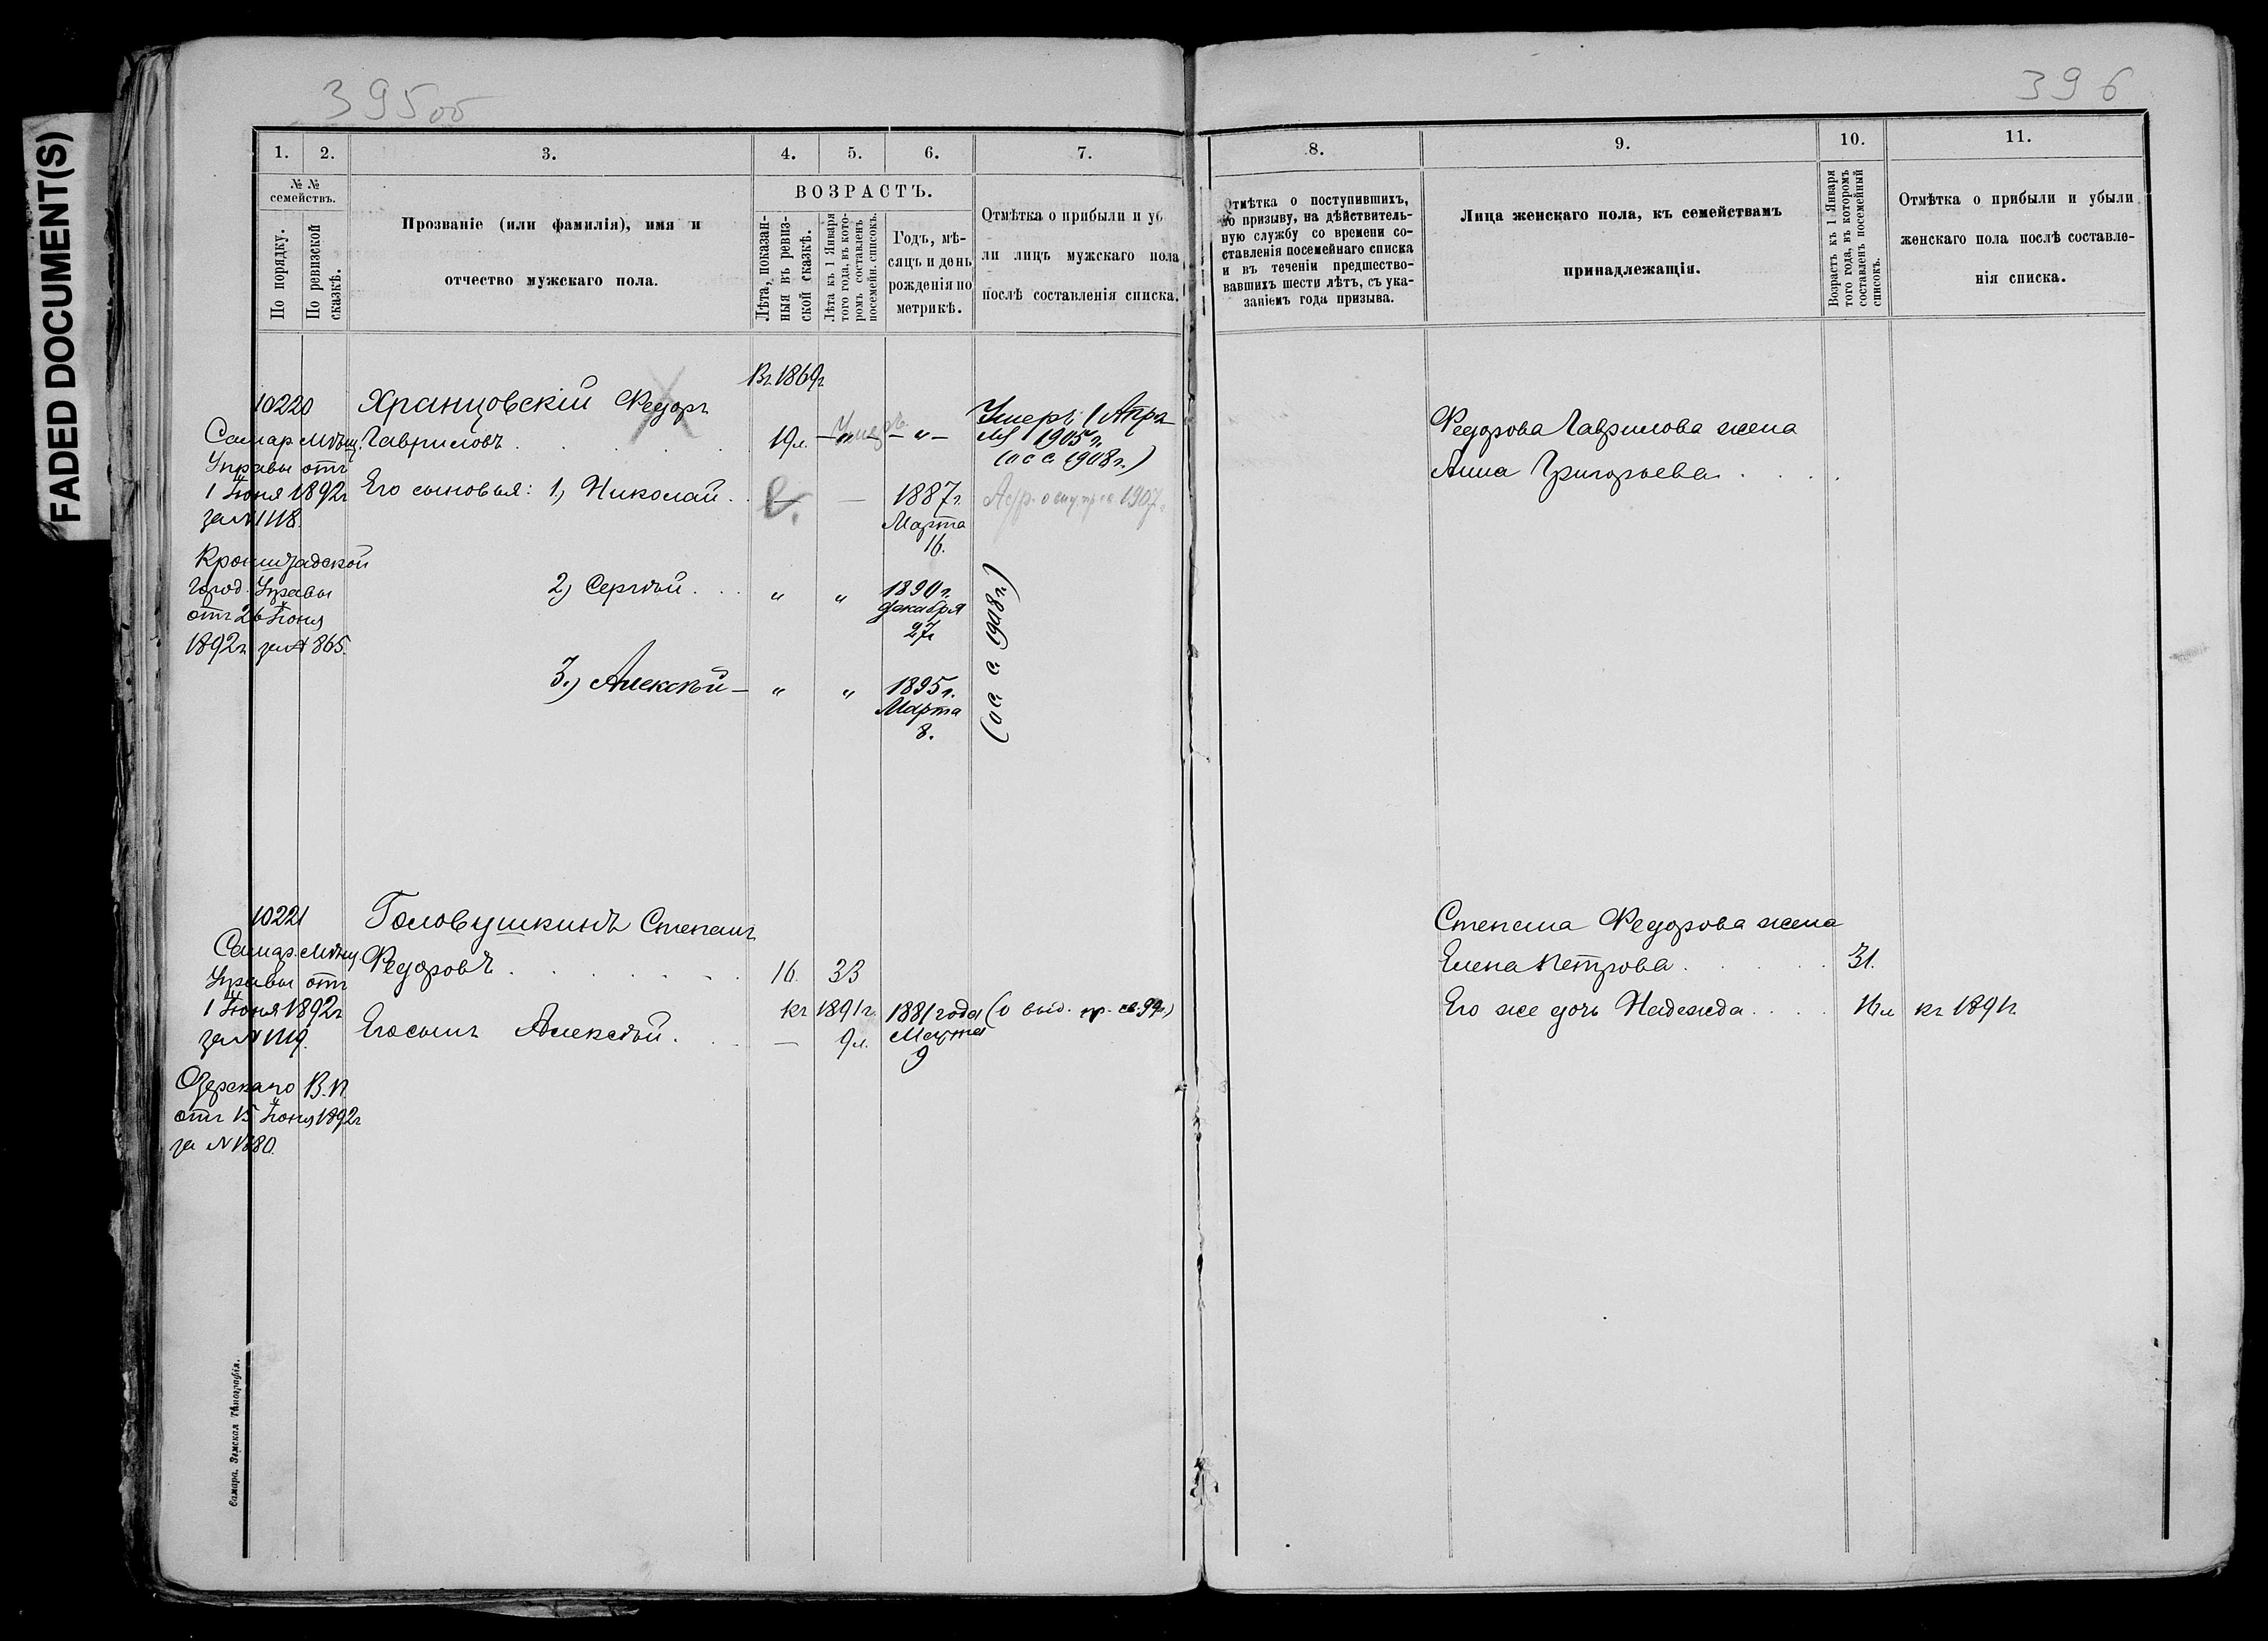 FADED DOCUMENT(S)
395об
396
1. 2. 3. 4. 5. 6. 7.
№ № семействъ.
По порядку.
По ревизской сказкѣ.
Прозваніе (или фамилія), имя и
отчество мужскаго пола.
ВОЗРАСТЪ.
Лѣта, показан-
ныя въ ревиз-
ской сказкѣ.
Лѣта къ 1 Января
того года, въ кото-
ромъ составленъ
посемейн. списокъ.
Годъ, мѣ-
сяцъ и день
рожденія по
метрикѣ.
Отмѣтка о прибыли и уб
ли лицъ мужскаго пола
послѣ составленія списка.
Въ 1869г
10220 Хранцовскій Федоръ
Самар. Мѣщ. Гавриловъ . 19л. — „ — — „ — Умеръ 1 Апрѣ-
Управы отъ ля 1905 г.
(о с с 1908 г.)
1 Іюня 1892г Его сыновья: 1) Николай . . — 1887 г.
за № 1118. Марта
16.
Кронштадской
Город. Управы 2) Сергѣй . . „ „ 1890 г.
отъ 26 Іюня декабря
27
1892г за № 865.
3.) Алексѣй — „ „ 1895 г.
Марта
8.
(о с с 1908 г.)
10221 Головушкинъ Степанъ
Самар. Мѣщ. Федоровъ . . . 16. 33
Управы отъ
1 Іюня 1892г къ 1891 г. 1881 года (о выд. пр. св 99г.)
за № 1119. Его сынъ Алексѣй . . — 9 л. Марта
9
Озерскаго В. П.
отъ 15 Іюня 1892г
за № 1880.
Самара. Земская Типографія.
8. 9. 10. 11.
Отмѣтка о поступившихъ,
по призыву, на дѣйствитель-
ную службу со времени со-
ставленія посемейнаго списка
и въ теченіи предшество-
вавшихъ шести лѣтъ, съ ука-
заніемъ года призыва.
Лица женскаго пола, къ семействамъ
принадлежащія.
Возрастъ къ 1 Января
того года, въ которомъ
составленъ посемейный
списокъ.
Отмѣтка о прибыли и убыли
женскаго пола послѣ составле-
нія списка.
Федорова Гаврилова жена
Анна Григорьева . . . .
Степана Федорова жена
Елена Петрова . . . . 31.
Его же дочь Надежда . . . . 16л къ 1891г.